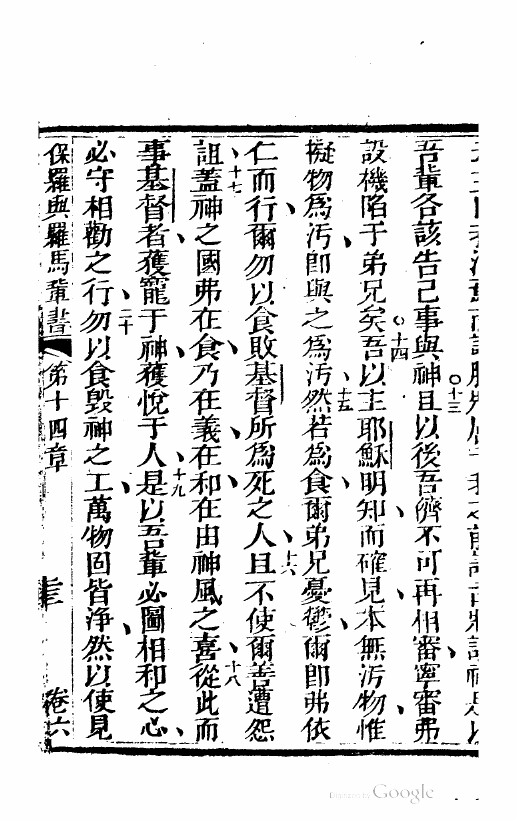 吾輩各該告己事與神十三且以後吾儕不可再相審寧審弗
設機陷于弟兄矣十四吾以主耶穌明知而確見本無汚物惟
擬物爲汚卽與之爲汚十五然若爲食爾弟兄憂鬱爾卽弗依
仁而行爾勿以食敗基督所爲死之人十六且不使爾善遭怨
詛十七蓋神之國弗在食乃在義在和在由神風之喜十八從此而
事基督者獲寵于神獲悅于人十九是以吾輩必圖相和之心
必守相勸之行二十勿以食毀神之工萬物固皆淨然以使見
保羅與羅馬輩書 第十四章 卷六
Digitized by Google